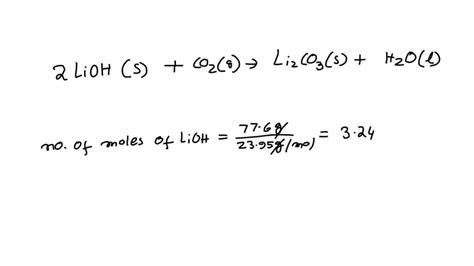 2 LiOH (s) + CO₂(g) → Li₂CO₃(s) + H₂O(l)
no. of moles of LiOH = 77.6g / 23.95g/mol = 3.24